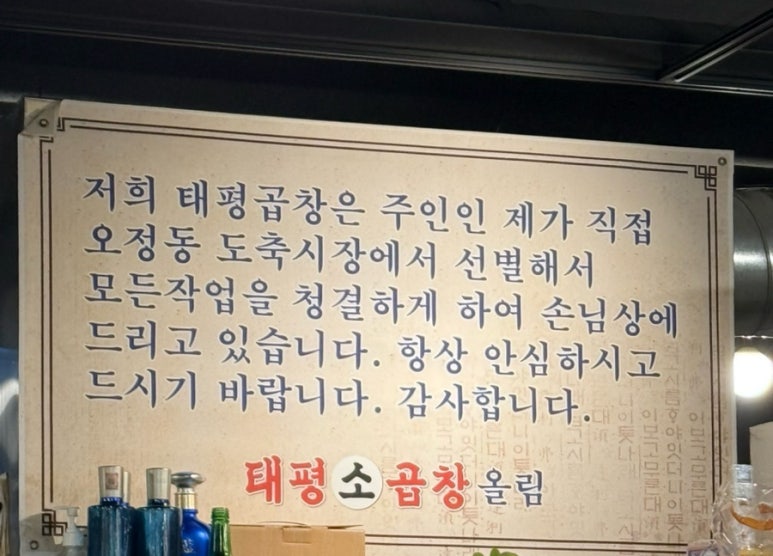 저희 태평곱창은 주인인 제가 직접
오정동 도축시장에서 선별해서
모든작업을 청결하게 하여 손님상에
드리고 있습니다. 항상 안심하시고
드시기 바랍니다. 감사합니다.
태평소곱창올림